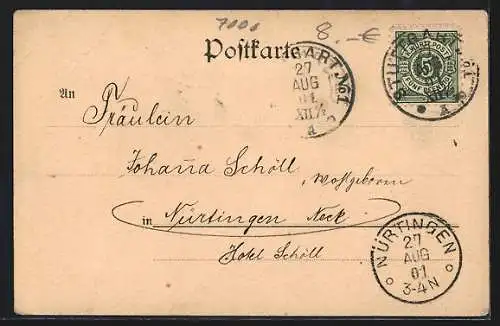 7000 8.-€
Postkarte
STUTTGART. No1
27
AUG
01
XII. ½
A
K. WÜRTT. POST
5
FÜNF PFENNIG
An
Fräulein
Johanna Schöll, Wohlgeboren
in Nürtingen Neck
Hotel Schöll
NÜRTINGEN
27
AUG
01
3-4N